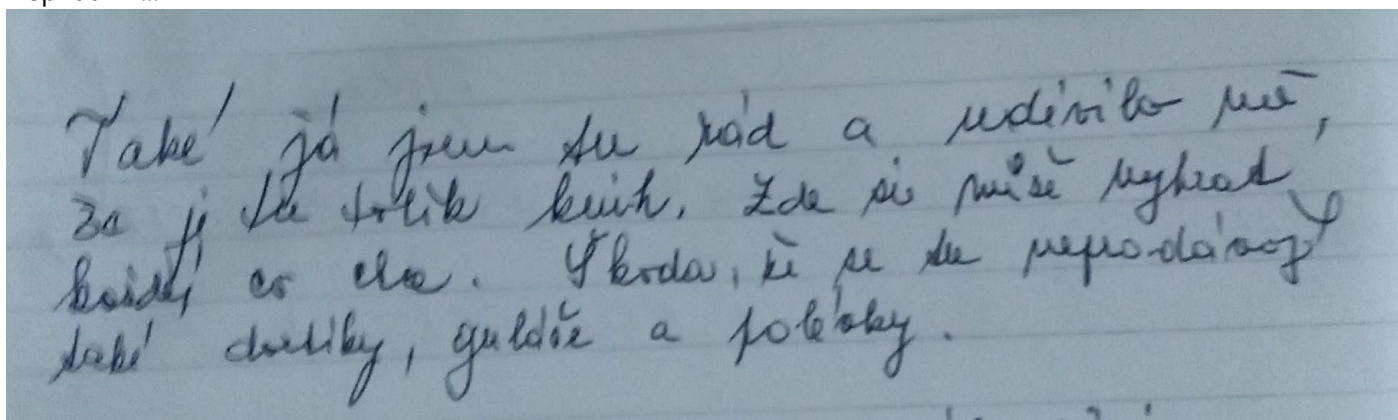 Také já jsem tu rád a udivilo mě,
že je tu tolik knih. Zde si může vybrat
každý co chce. Škoda, že se tu neprodávají
také chlebíky, guláše a polévky.